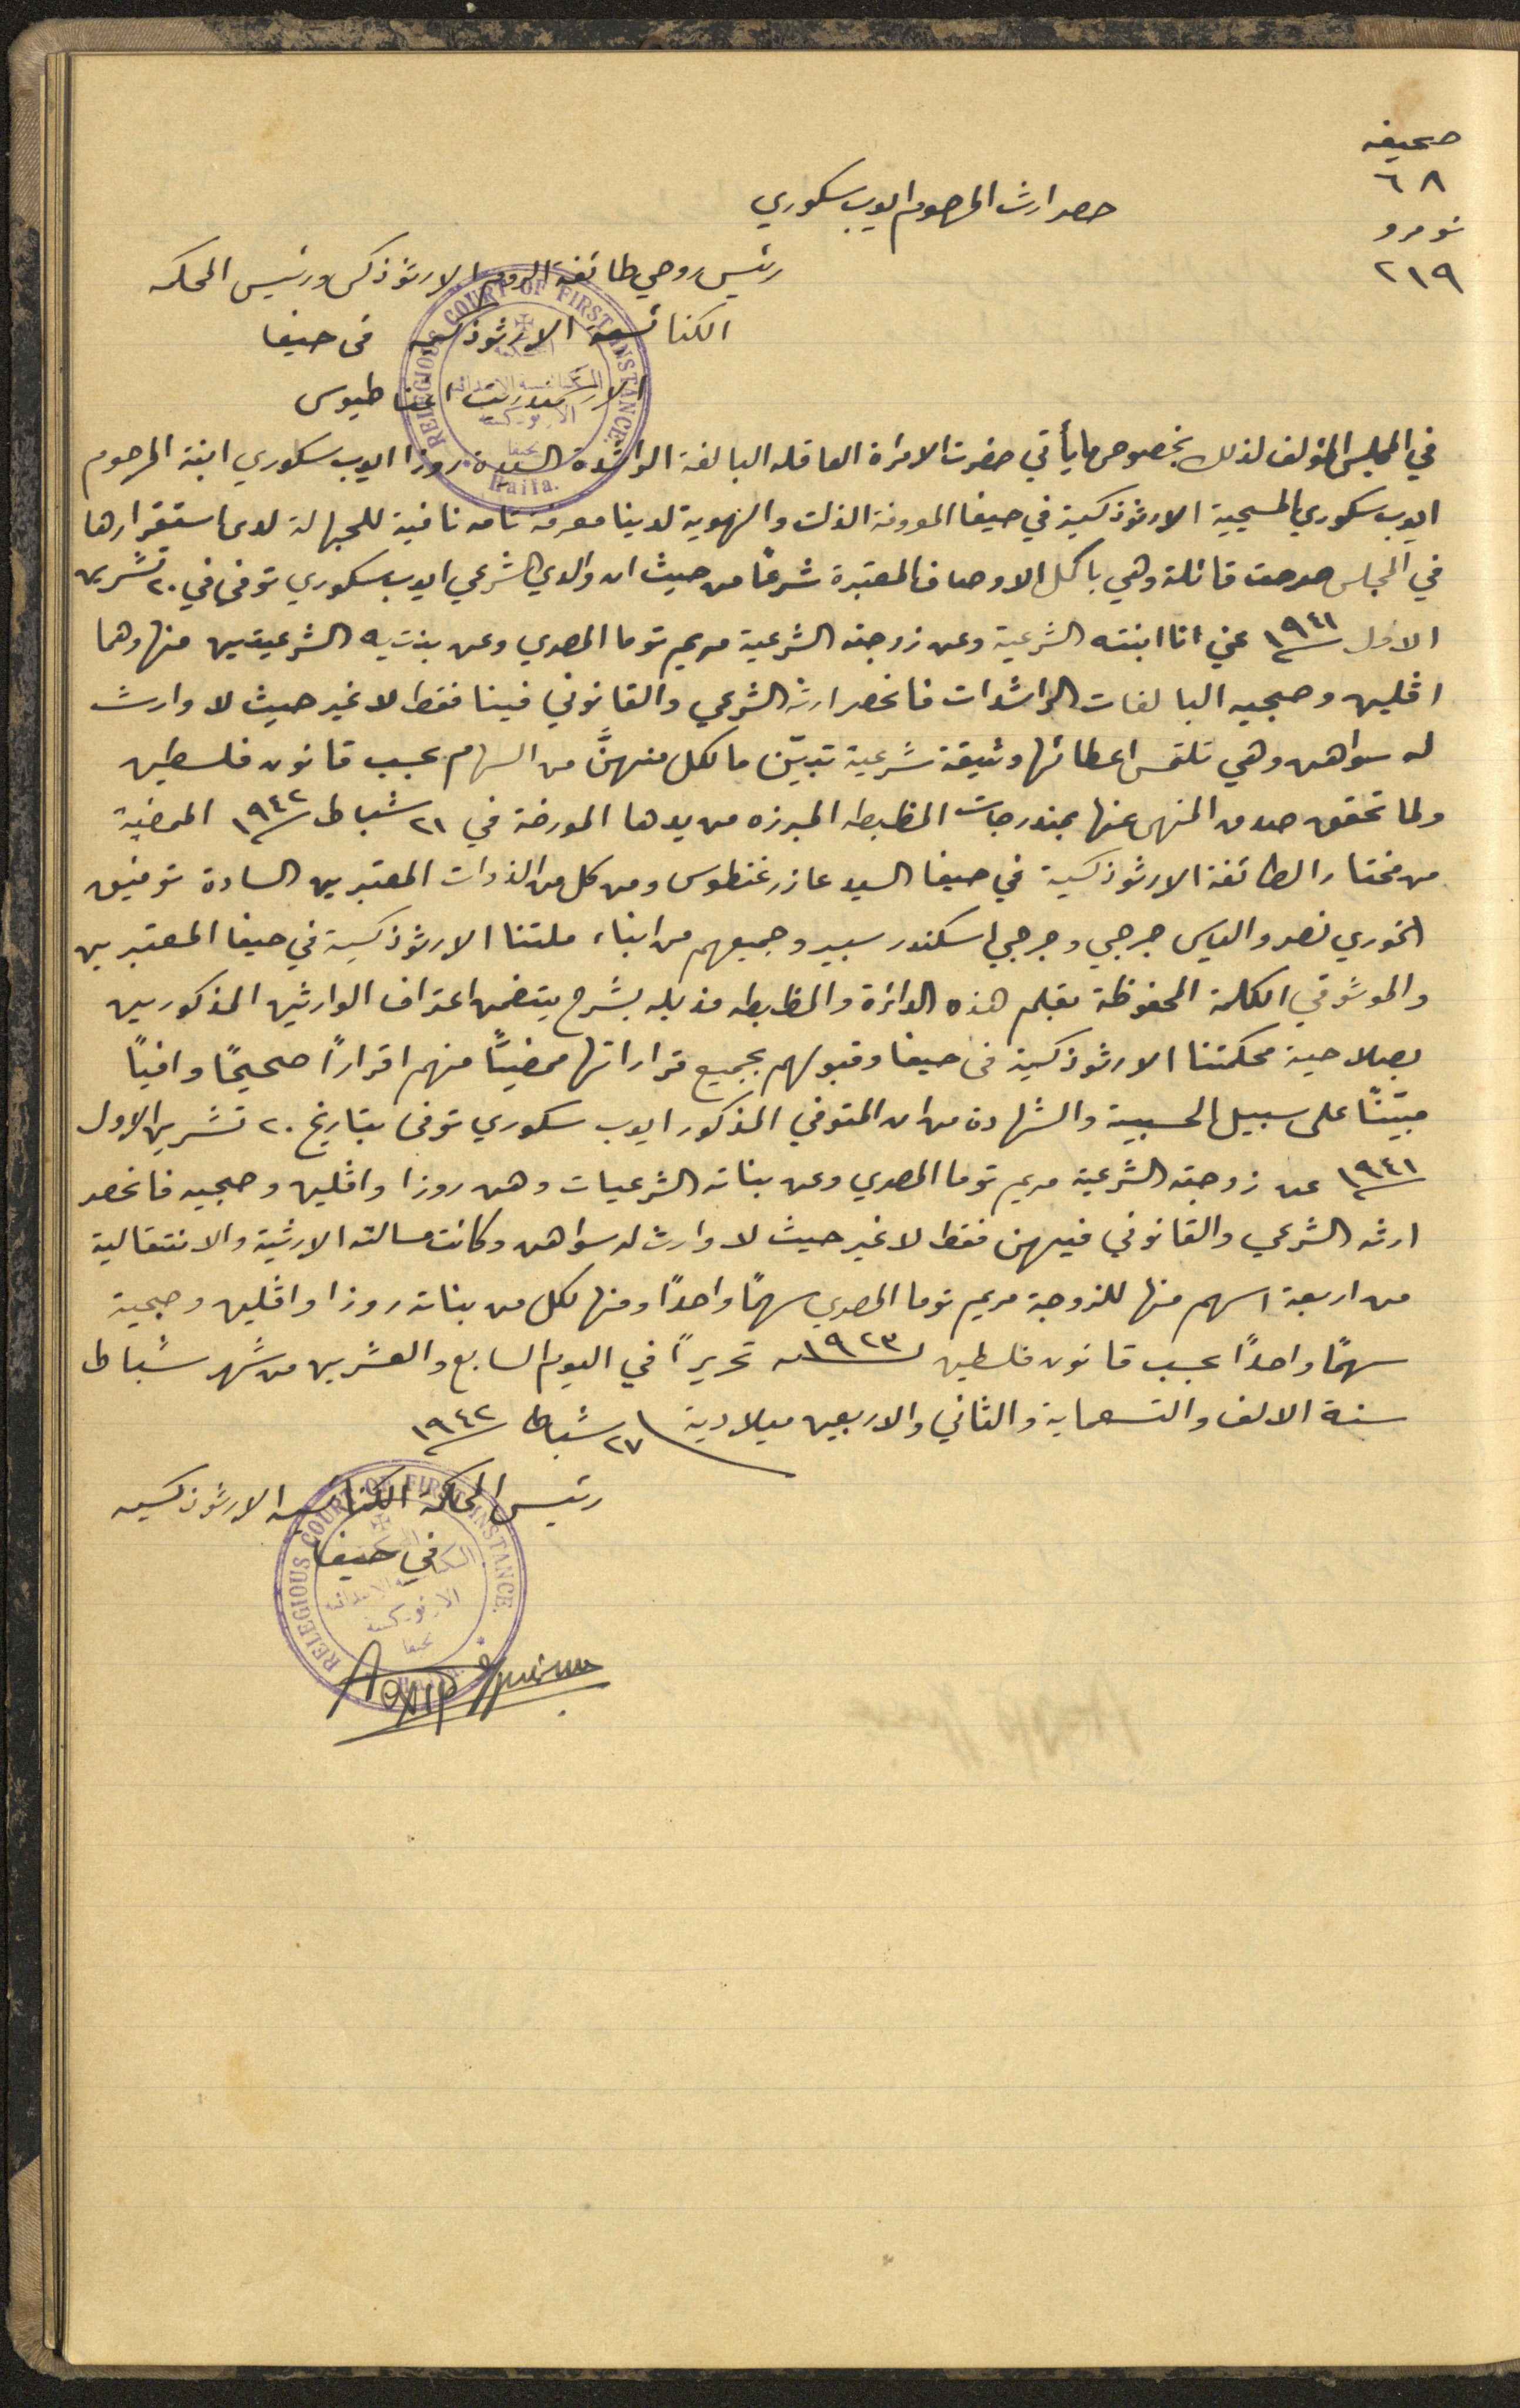 صحيفه
٦٨
نومرو
٢١٩
حصر ارث المرحوم ايوب سكوري
رئيس روحي طائفة الروم الارثوذكس ورئيس المحكمه
الكنائسيه الارثوذكسيه في حيفا
الارشمندريت اغناطيوس
RELEGIOUS COURT OF FIRST INSTANCE.
Haifa.
في المجلس المؤلف لذلك بخصوص ما يأتي حضرت الامرأة العاقله البالغة الراشده السيدة روزا ايوب سكوري ابنة المرحوم
ايوب سكوري المسيحية الارثوذكسية في حيفا المعروفة الذات والهوية لدينا معرفة تامه نافية للجهالة لدى استقرارها
في المجلس صرحت قائلة وهي باكمل الاوصاف المعتبرة شرعًا من حيث ان والدي الشرعي ايوب سكوري توفى في ٢٠ تشرين
الاول ١٩٤١ عني انا ابنته الشرعية وعن زوجته الشرعية مريم توما المصري وعن بنتيه الشرعيتين منها وهما
اڤلين وصبحيه البالغات الراشدات فانحصر ارثه الشرعي والقانوني فينا فقط لا غير حيث لا وارث
له سواهن وهي تلتمس اعطائها وثيقة شرعية تبيّن ما لكل منهنَّ من السهام بحسب قانون فلسطين
ولما تحقق صدق المنهى عنها بمندرجات المظبطه المبرزه من يدها المورخة في ٢١ شباط ١٩٤٢ الممضية
من مختار الطائفة الارثوذكسية في حيفا السيد عازر غنطوس ومن كل من الذوات المعتبرين السادة توفيق
الخوري نصر والياس جرجي وجرجي اسكندر سبير وجميعهم من ابناء ملتنا الارثوذكسية في حيفا المعتبرين
والموثوقي الكلمة المحفوظة بقلم هذه الدائرة والمظبطه مذيله بشرح يتضمن اعتراف الوارثين المذكورين
بصلاحية محكمتنا الارثوذكسية في حيفا وقبولهم بجميع قراراتها ممضيًّا منهم اقرارًا صحيحًا وافيًا
مبيّنًا على سبيل الحسبية والشهادة من ان المتوفي المذكور ايوب سكوري توفى بتاريخ ٢٠ تشرين الاول
١٩٤١ عن زوجته الشرعية مريم توما المصري وعن بناته الشرعيات وهن روزا واڤلين وصبحيه فانحصر
ارثه الشرعي والقانوني فيهن فقط لا غير حيث لا وارث له سواهن وكانت مسالته الارثية والانتقالية
من اربعة اسهم منها للزوجة مريم توما المصري سهمًا واحدًا ومنها لكل من بناته روزا واڤلين وصبحية
سهمًا واحدًا بحسب قانون فلسطين لسنة ١٩٢٣ تحريرًا في اليوم السابع والعشرين من شهر شباط
سنة الالف والتسعماية والثاني والاربعين ميلادية ٢٧ شباط ١٩٤٢
رئيس المحكمة الكنائسيه الارثوذكسيه
في حيفا
RELEGIOUS COURT OF FIRST INSTANCE.